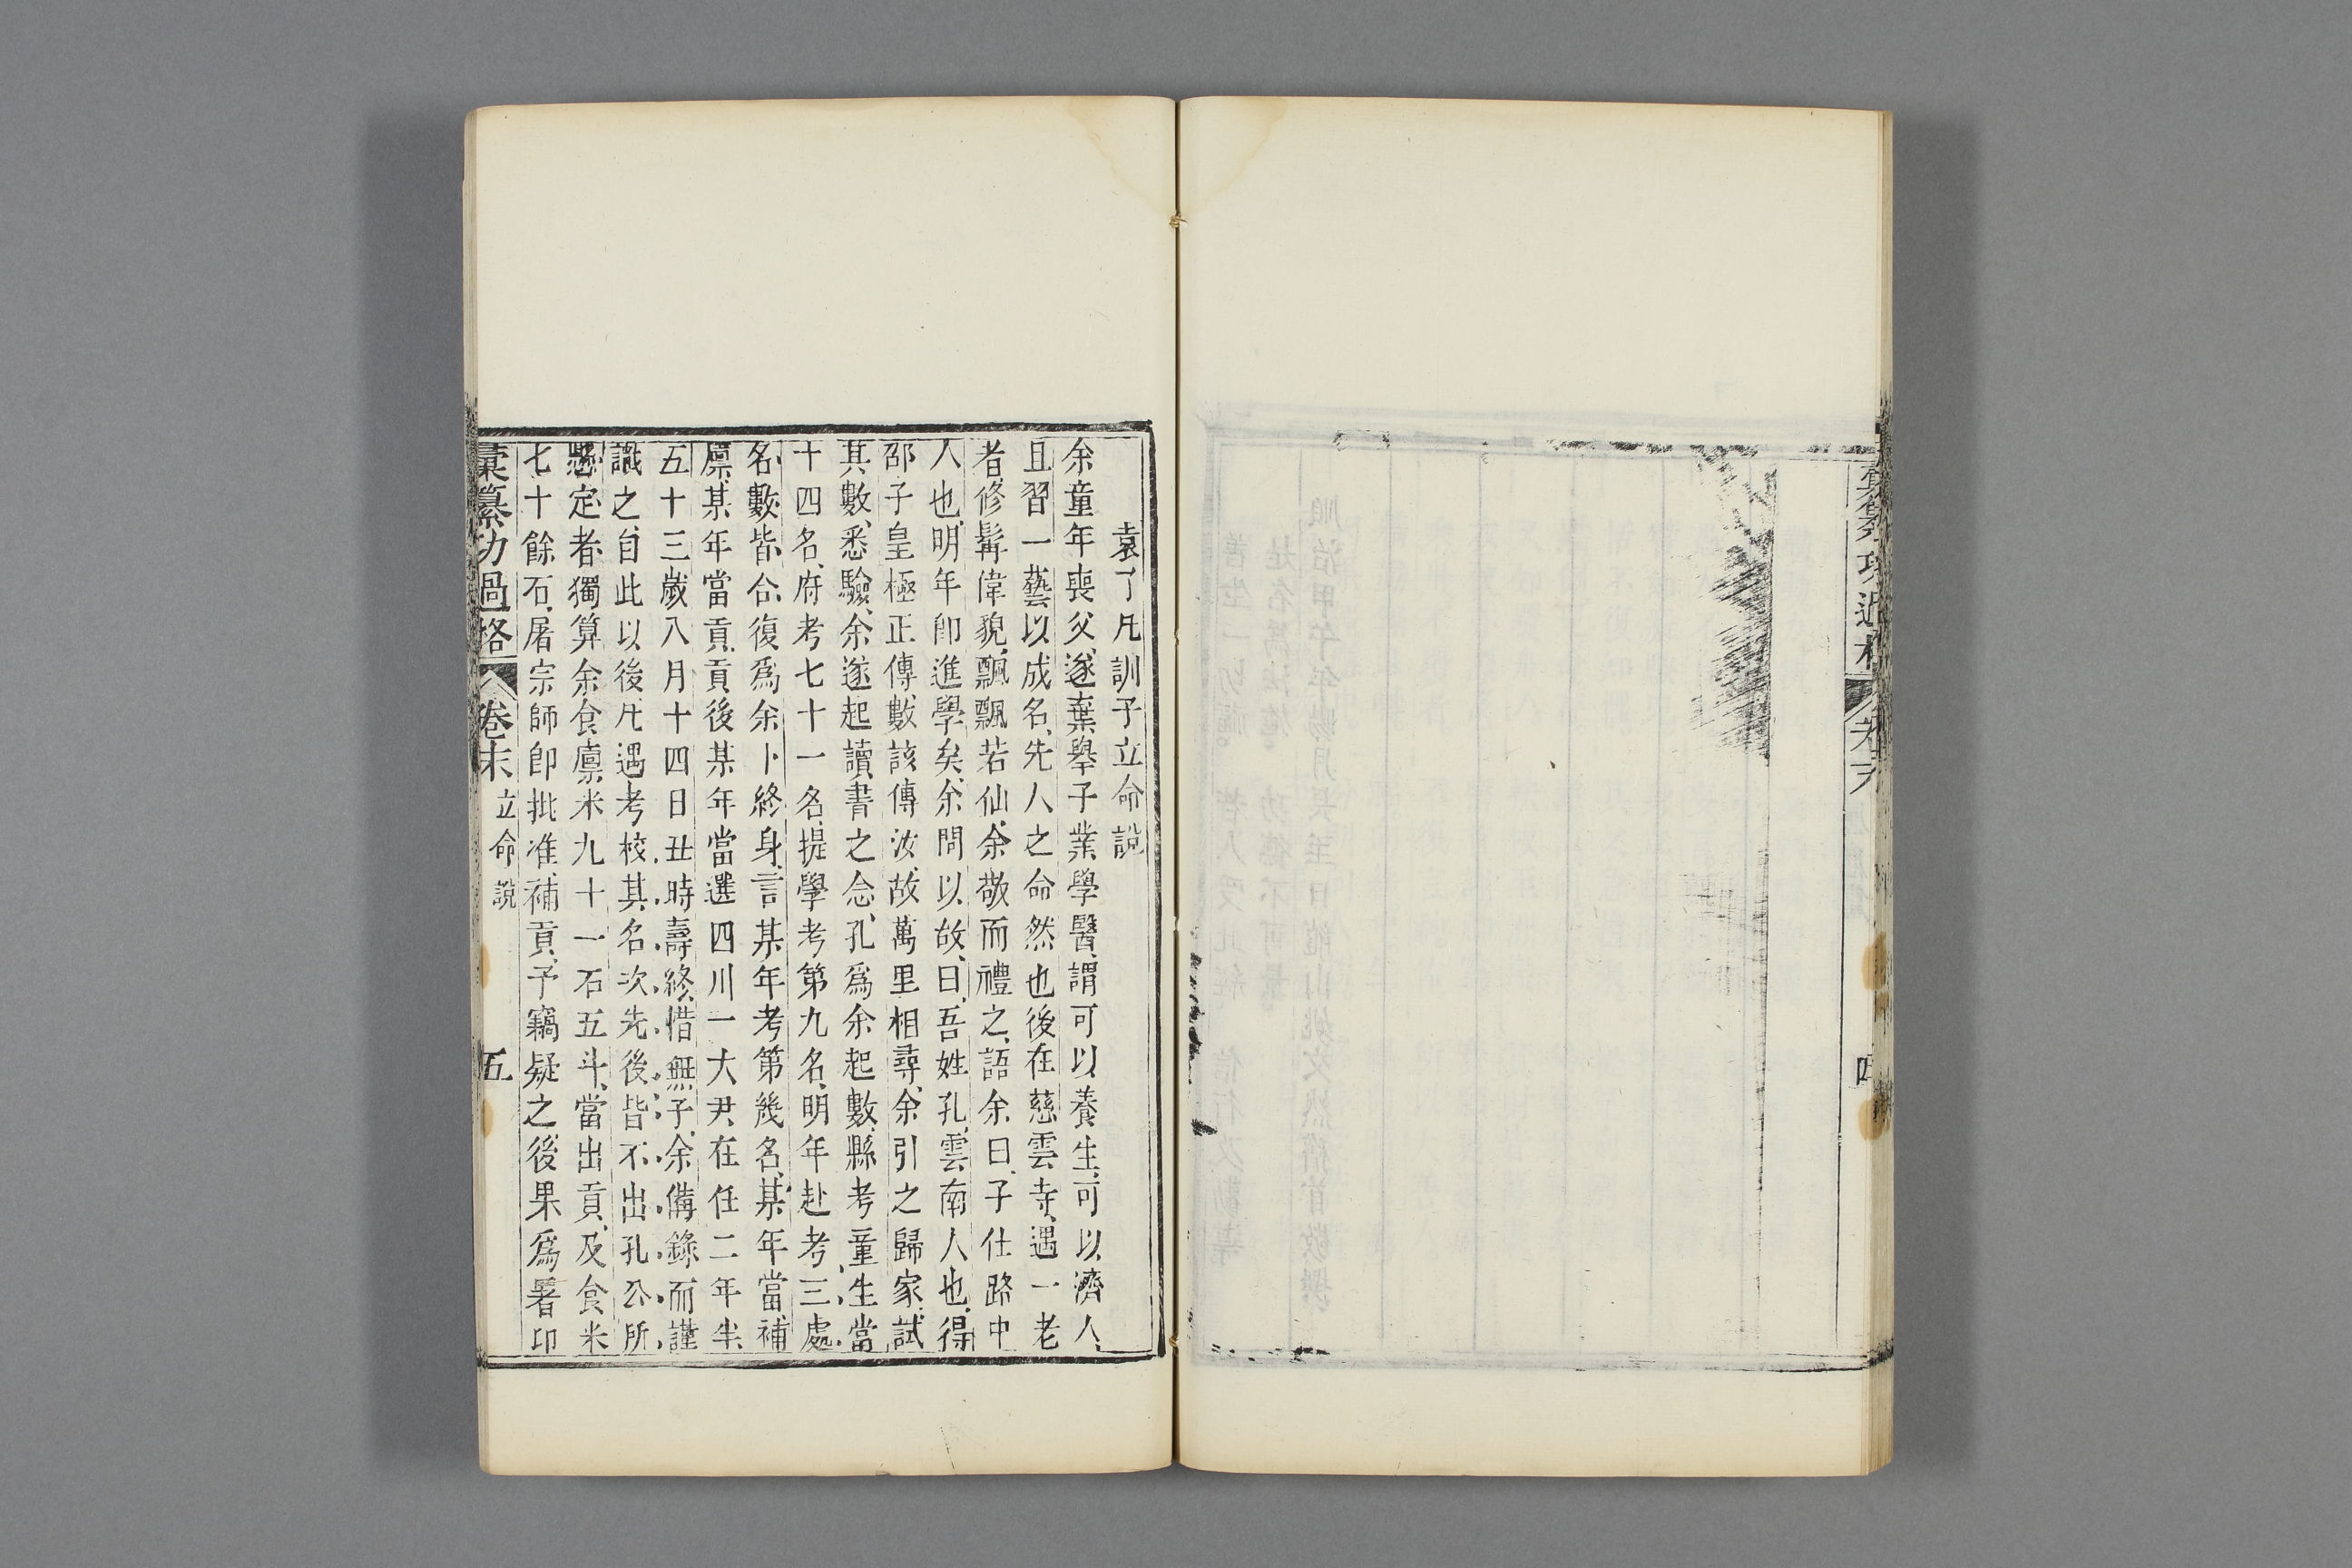 彙纂功過格
卷末
四
袁了凡訓子立命說
余童年喪父、遂棄舉子業學醫、謂可以養生、可以濟人、
且習一藝以成名、先人之命然也、後在慈雲寺、遇一老
者、修髯偉貌、飄飄若仙、余敬而禮之、語余曰、子仕路中
人也、明年卽進學矣、余問以故、曰、吾姓孔、雲南人也、得
邵子皇極正傳、數該傳汝、故萬里相尋、余引之歸家、試
其數、悉驗、余遂起讀書之念、孔爲余起數、縣考童生當
十四名、府考七十一名、提學考第九名、明年赴考、三處
名數皆合、復爲余卜終身、言某年考第幾名、某年當補
廩、某年當貢、貢後某年當選四川一大尹、在任二年半、
五十三歲八月十四日丑時壽終、惜無子、余備錄而謹
識之、自此以後、凡遇考校、其名次先後、皆不出孔公所
懸定者、獨算余食廩米九十一石五斗、當出貢、及食米
七十餘石、屠宗師卽批准補貢、予竊疑之、後果爲署印
彙纂功過格 卷末 立命說 五